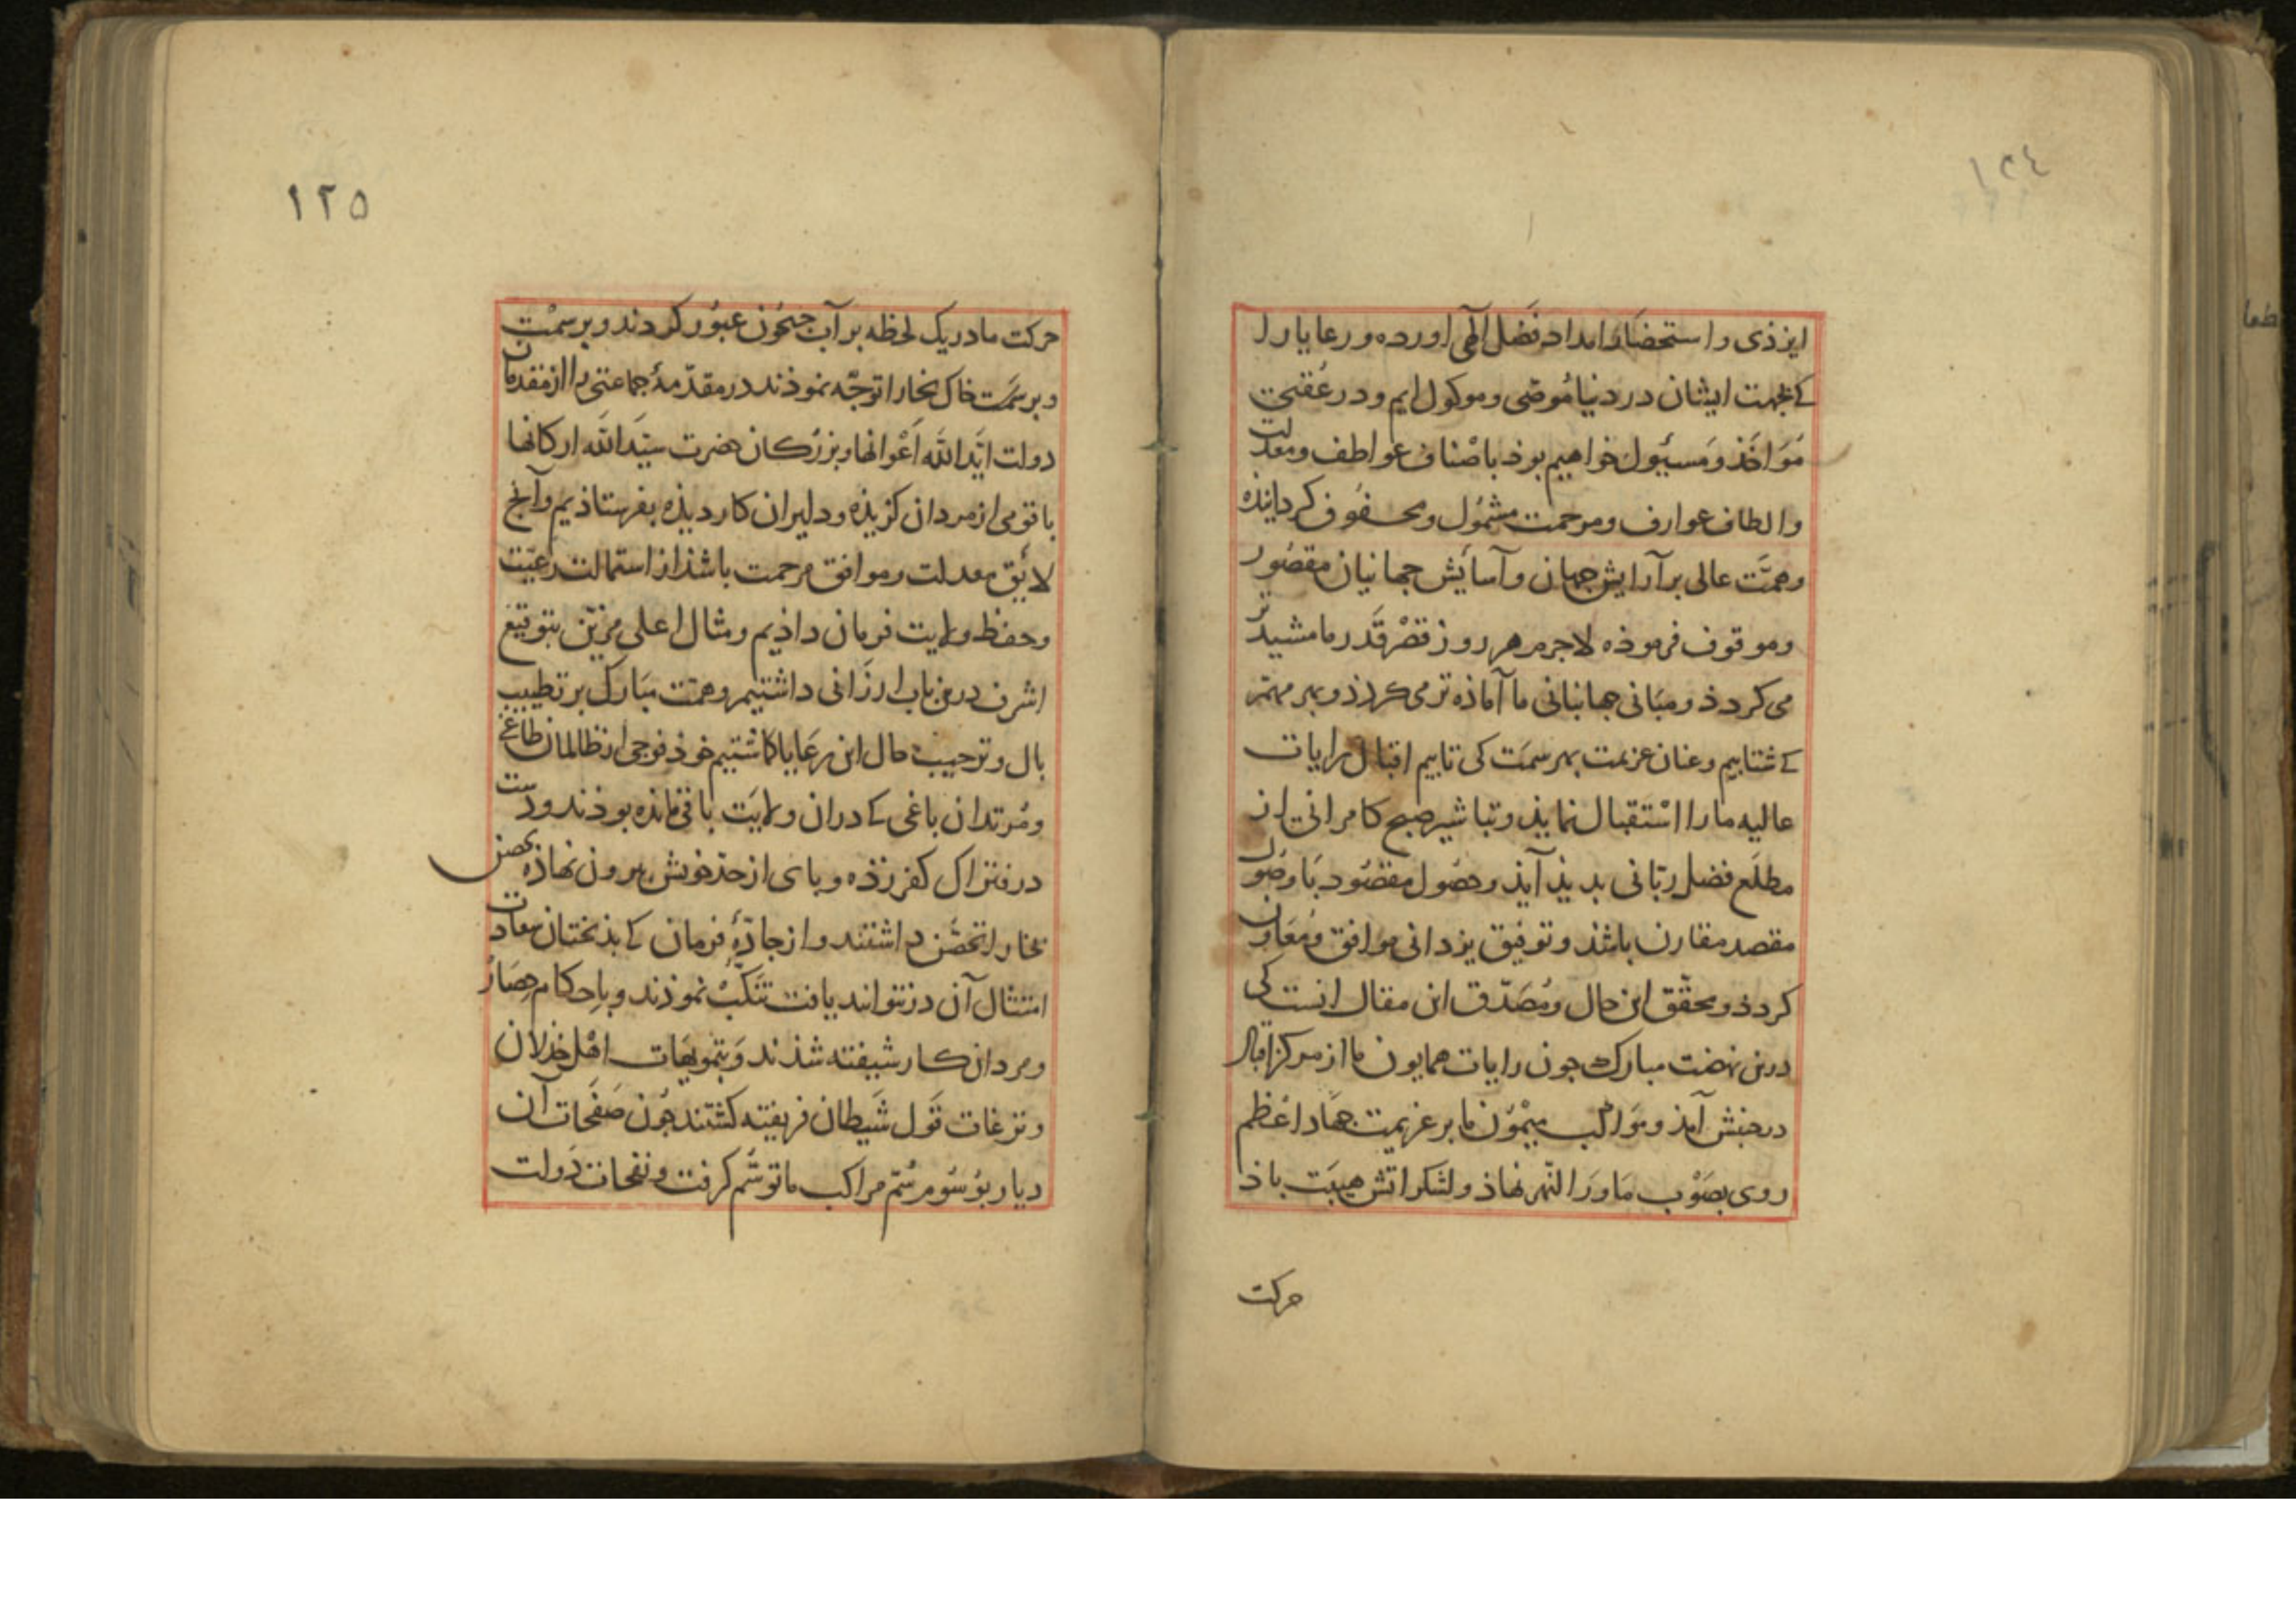 ١٢٤
ایزذی و استحضار امداد فضل الهی اورده و رعایا را
کے بجهت ایشان در دنیا مُوصّی و موکول ایم و در عُقبی
مُوَاخَذ و مَسئول خواهیم بوذ باصْناف عواطف و معدلت
و الطاف عوارف و مرحمت مشمُول و محفُوف کردانیذه
و همَّت عالی بر آرایش جهان و آسایش جهانیان مقصُور
و موقوف فرموذه لاجرم هر روز قصْر قَدر ما مشیدتر
می کردذ و مبَانی جهانبانی ما آماذه تر می کردذ و بهر مهم
کے شتابیم و عنان عزیمت بهر سمَت کی تابیم اقبال رایات
عالیه ما را اسْتقبال نمایذ و تباشیر صبح کامرانی از
مطلَع فضل ربّانی بدیذ آیذ و حصُول مقصُود بَا وصُول
مقصد مقارن باشذ و توفیق یزدانی موافق و مُعَاون
کردذ و محقّق این حال و مُصَدّق این مقال انست کی
درین نهضت مبارک جون رایات همایون ما از مرکز اقبال
درجنبش آمذ و موَاکب میْمُوْن ما بر عزیمت جهَاد اعْظم
روی بصَوْب مَا وَرَا النّهر نهاذ و لشکر اتش هیبَت باذ
حرکت
١٢٥
حرکت ما در یک لحظه بر آب جیحُون عبُور کردند و بر سمْت
و بر سمَت خاک بخارا توجّه نموذند در مقدّمهٔ جماعتی را از مقدمان
دولت ایَّد اللّه اَعْوانها و بزرکان حضرت شیَّد اللّه ارکانها
با قومی از مردان کزیذه و دلیران کار دیذه بفرستاذیم و آنج
لایق معدلت و موافق مرحمت باشذ از استمالت رعیّت
و حفظ ولایت فرمان داذیم و مثال اعلی مزیّن بتوقیع
اشرف درین باب ارزَانی داشتیم و همّت مبَارک بر تطییب
بال و ترحیب حال این رعَایا کماشتیم خوذ فوجی از ظالمان طاغی
و مُرتدان باغی کے دران ولایَت باقی مانده بوذند و دست
در فتراک کفر زذه و بای از حدّ خویش بیرون نهاذه بحصن
بخارا تحصّن داشتند و از جادّهٔ فرمان کے بذبختان سعادت
امتثال آن در نتوانند یافت تنکّبْ نموذند و باحکام حِصَار
و مردان کار شیفته شذند وَ بتمویهَات اهْل خذلان
و نزغات قَول شَیطان فریفته کشتند جُون صَفَحَات آن
دیار بوُسُوم رسُم مراکب ما توسّم کرفت و نفحات دَولت